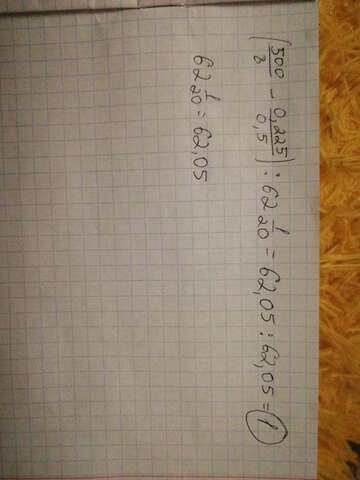 (500/8 - 0,225/0,5) : 62 1/20 = 62,05 : 62,05 = 1
62 1/20 = 62,05